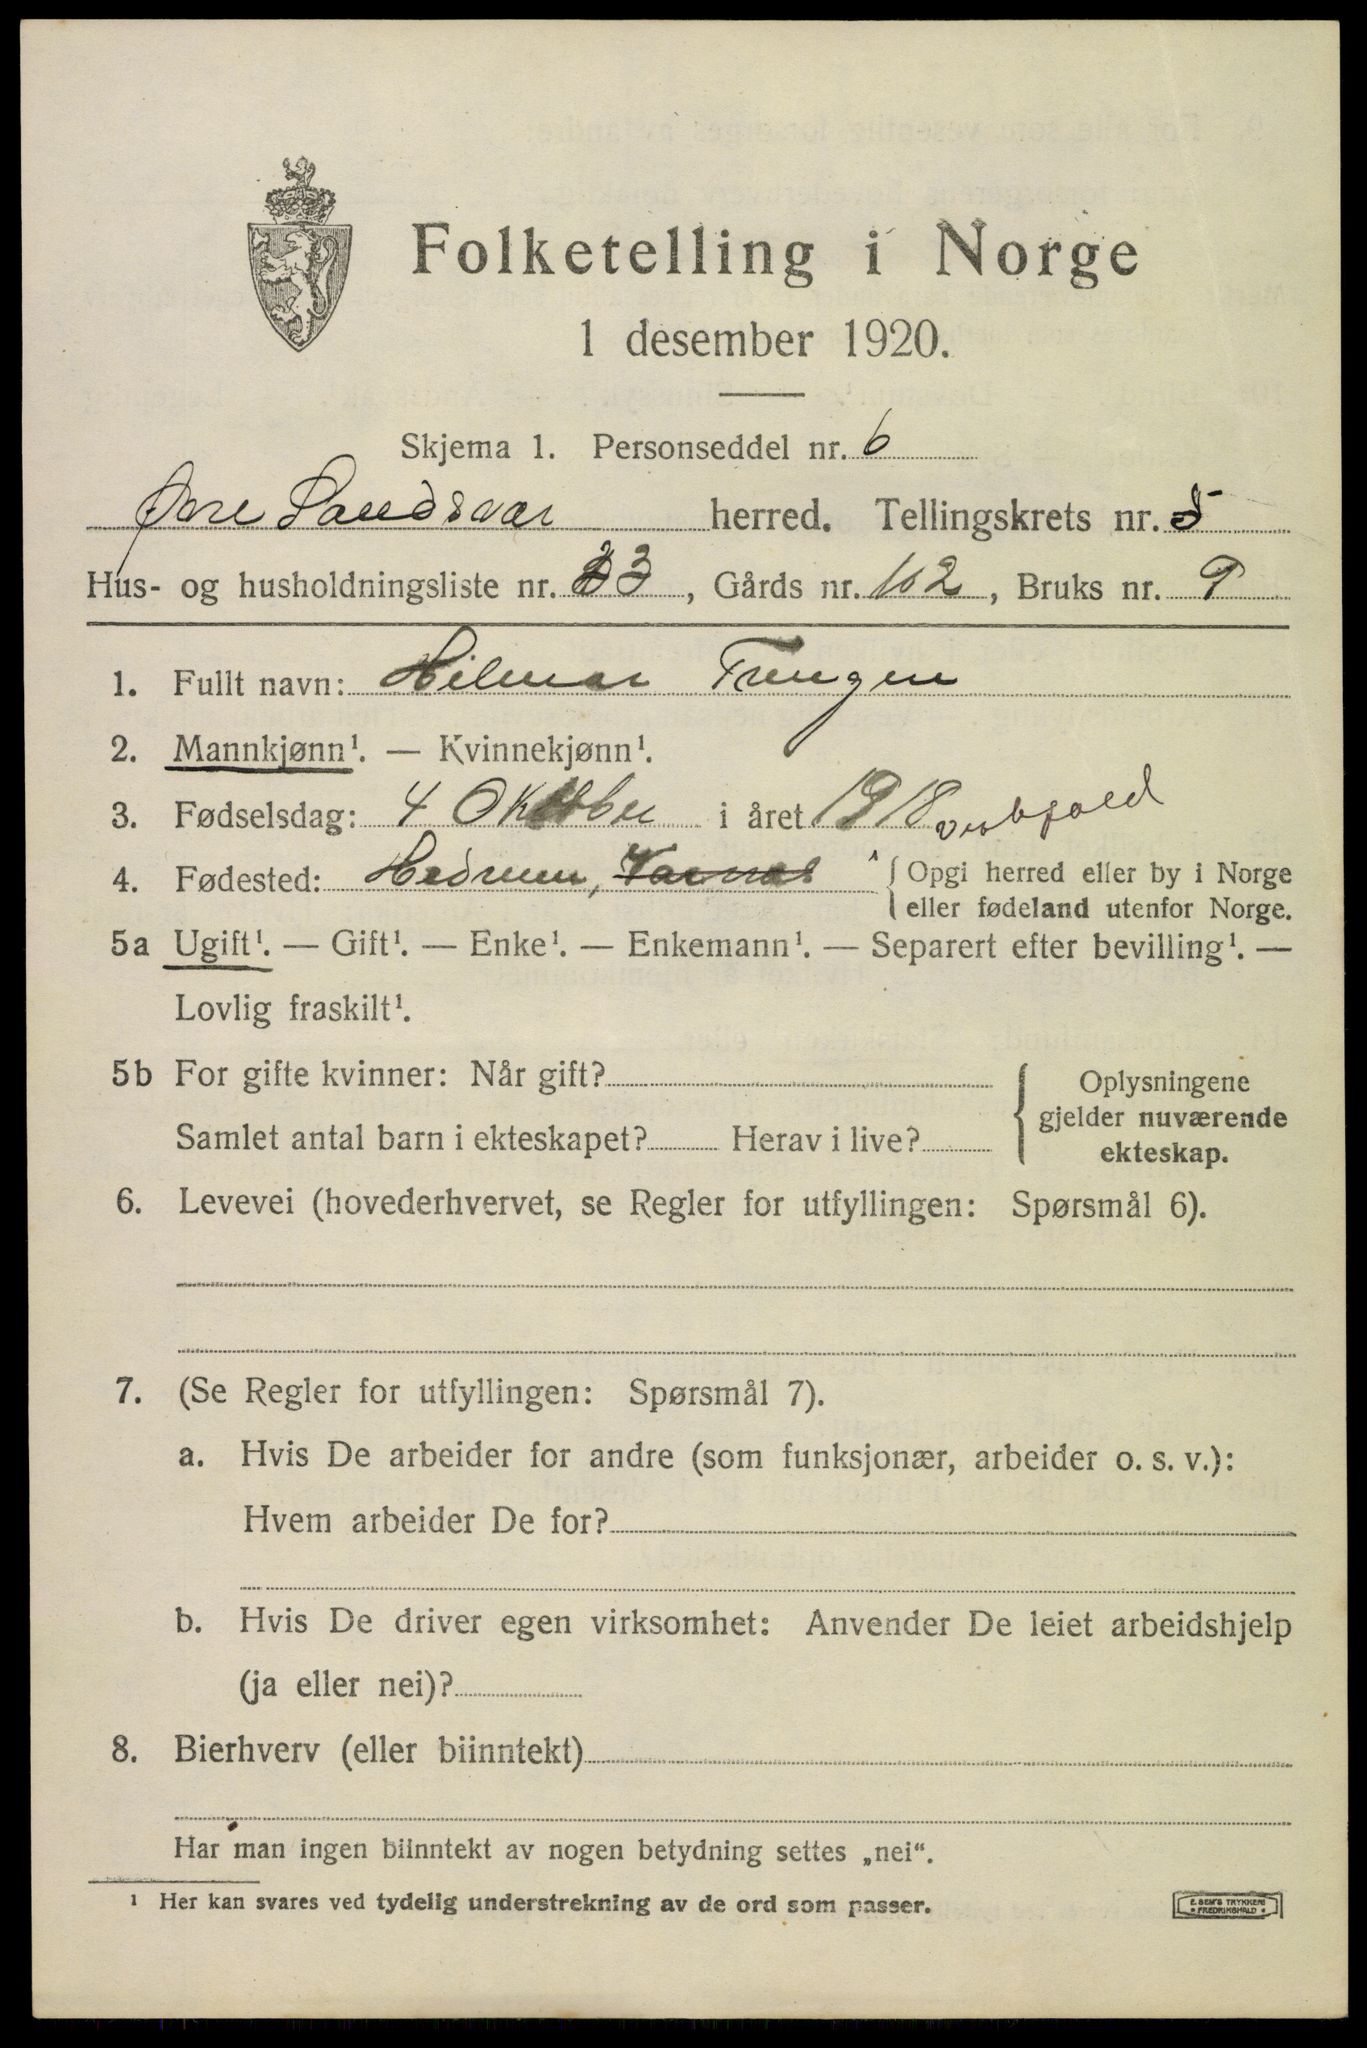 Folketelling i Norge
1 desember 1920.
Skjema 1. Personseddel nr. 6
Øvre Sandsvær herred. Tellingskrets nr. 5
Hus- og husholdningsliste nr. 33, Gårds nr. 102, Bruks nr. 9
1. Fullt navn: Hilmar
2. Mannkjønn¹. — Kvinnekjønn¹.
3. Fødselsdag: 4 Oktober i året 1918 Vestfold
4. Fødested: Hedrum, { Opgi herred eller by i Norge
eller fødeland utenfor Norge.
5a Ugift¹. — Gift¹. — Enke¹. — Enkemann¹. — Separert efter bevilling¹. —
Lovlig fraskilt¹.
5b For gifte kvinner: Når gift? { Oplysningene
gjelder nuværende
Samlet antal barn i ekteskapet? Herav i live?
ekteskap.
6. Levevei (hovederhvervet, se Regler for utfyllingen: Spørsmål 6).
7. (Se Regler for utfyllingen: Spørsmål 7).
a. Hvis De arbeider for andre (som funksjonær, arbeider o. s. v.):
Hvem arbeider De for?
b. Hvis De driver egen virksomhet: Anvender De leiet arbeidshjelp
(ja eller nei)?
8. Bierhverv (eller biinntekt)
Har man ingen biinntekt av nogen betydning settes „nei“.
¹ Her kan svares ved tydelig understrekning av de ord som passer.
E. SEM'S TRYKKERI
FREDRIKSHALD